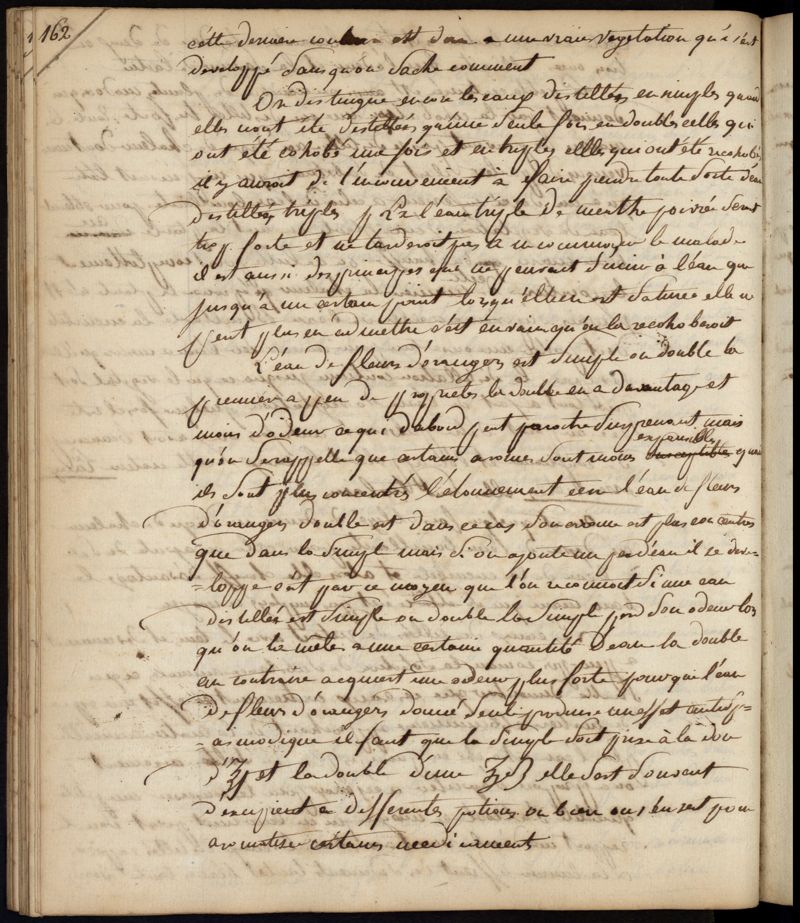 162
cette derniere couleur est due a une vraie vegetation qui s'est
developpé sans qu'on sache comment
On distingue encore les eaux distillées en simples quand
elles n'ont été distillées qu'une seule fois en doubles celles qui
ont été cohobé une fois et en triples elles qui ont été recohobé
il y auroit de l'inconvenient à faire prendre toute sorte d'eau
distillées triples p Ex l'eau triple de menthe poivrée seroit
trop forte et ne tarderoit pas a incommoder le malade
il est aussi des principes qui ne peuvent s'unir à l'eau que
jusqu'à un certain point lorsqu'elle en est saturée elle n
peut plus en admettre c'est en vain qu'on la recohoberoit
L'eau de fleurs d'orangers est simple ou double la
premiere a peu de proprietes la double en a davantage et
moins d'odeur ce qui d'abord peut paroitre surprenant mais
qu'on se rappelle que certains aromes sont moins susceptibles quand
expansibles
ils sont plus concentrés l'eau de fleurs
d'orangers double est dans ce cas son arome est plus concentré
que dans la simple mais si on ajoute un peu d'eau il se deve-
-loppe c'est par ce moyen que l'on reconnoit si une eau
distillée est simple ou double la simple perd son odeur lors
qu'on la mêle a une certaine quantité d'eau la double
au contraire acquiert une odeur plus forte pour que l'eau
de fleurs d'oranger donné seule produise un effet antisp-
-asmodique il faut que la simple soit prise à la dose
et la double d'une elle sert souvent
d'excipient a differentes potions ou bien on s'en sert pour
aromatiser certains medicaments